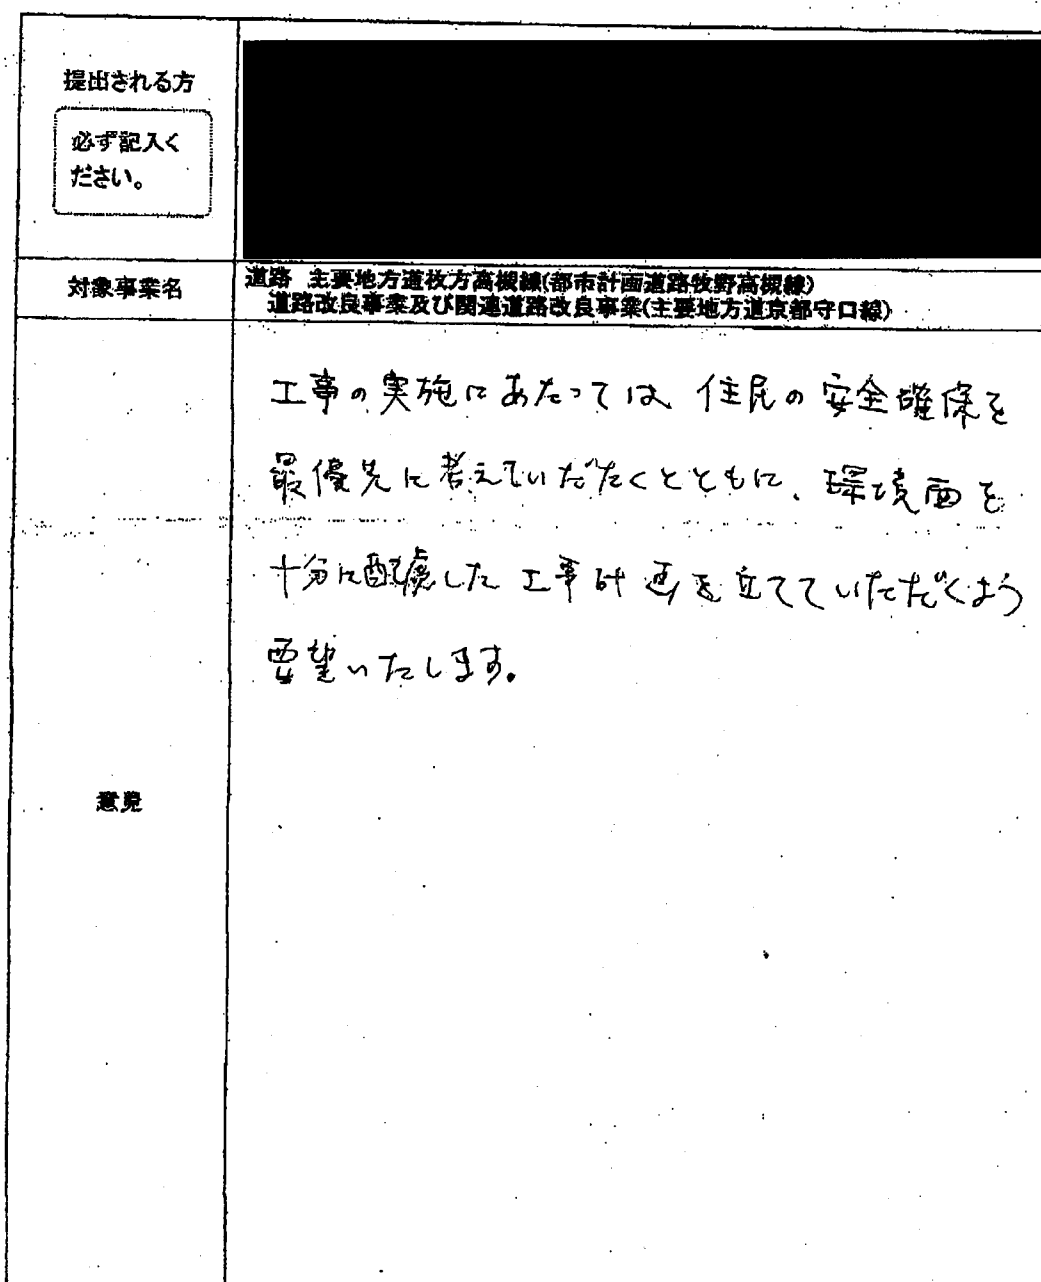 提出される方
必ず記入く
ださい。
対象事業名
道路 主要地方道枚方高槻線(都市計画道路牧野高槻線)
道路改良事業及び関連道路改良事業(主要地方道京都守口線)
工事の実施にあたっては 住民の安全確保を
最優先に考えていただくとともに、環境面を
十分に配慮した工事計画を立てていただくよう
要望いたします。
意見